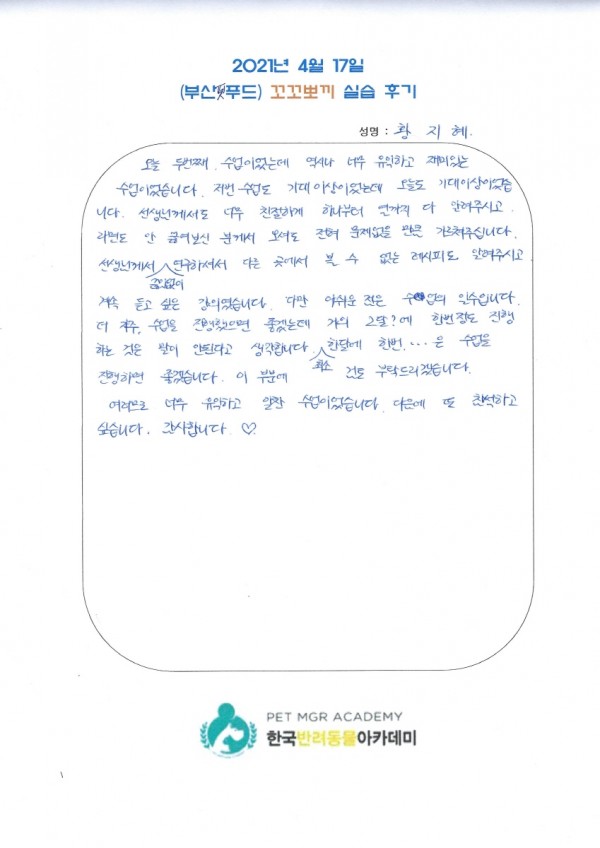 2021년 4월 17일
(부산푸드) 꼬꼬뽀끼 실습 후기
성명 : 황 지 혜.
오늘 두번째 수업이었는데 역시나 너무 유익하고 재미있는
수업이었습니다. 저번 수업도 기대이상이었는데 오늘도 기대이상이었습
니다. 선생님께서도 너무 친절하게 하나부터 열까지 다 알려주시고
라면도 안 끓여보신 분께서 오셔도 전혀 문제없을 만큼 가르쳐주십니다.
선생님께서 끊임없이 연구하셔서 다른 곳에서 볼 수 없는 레시피도 알려주시고
계속 듣고 싶은 강의였습니다. 다만 아쉬운 점은 수업의 일수입니다.
더 자주, 수업을 진행했으면 좋겠는데 거의 2달?에 한번정도 진행
하는 것은 말이 안된다고 생각합니다 최소 한달에 한번.... 은 수업을
진행하면 좋겠습니다. 이 부분에 건토 부탁드리겠습니다.
여러모로 너무 유익하고 알찬 수업이었습니다. 다음에 또 참석하고
싶습니다. 감사합니다. ♡
PET MGR ACADEMY
한국반려동물아카데미